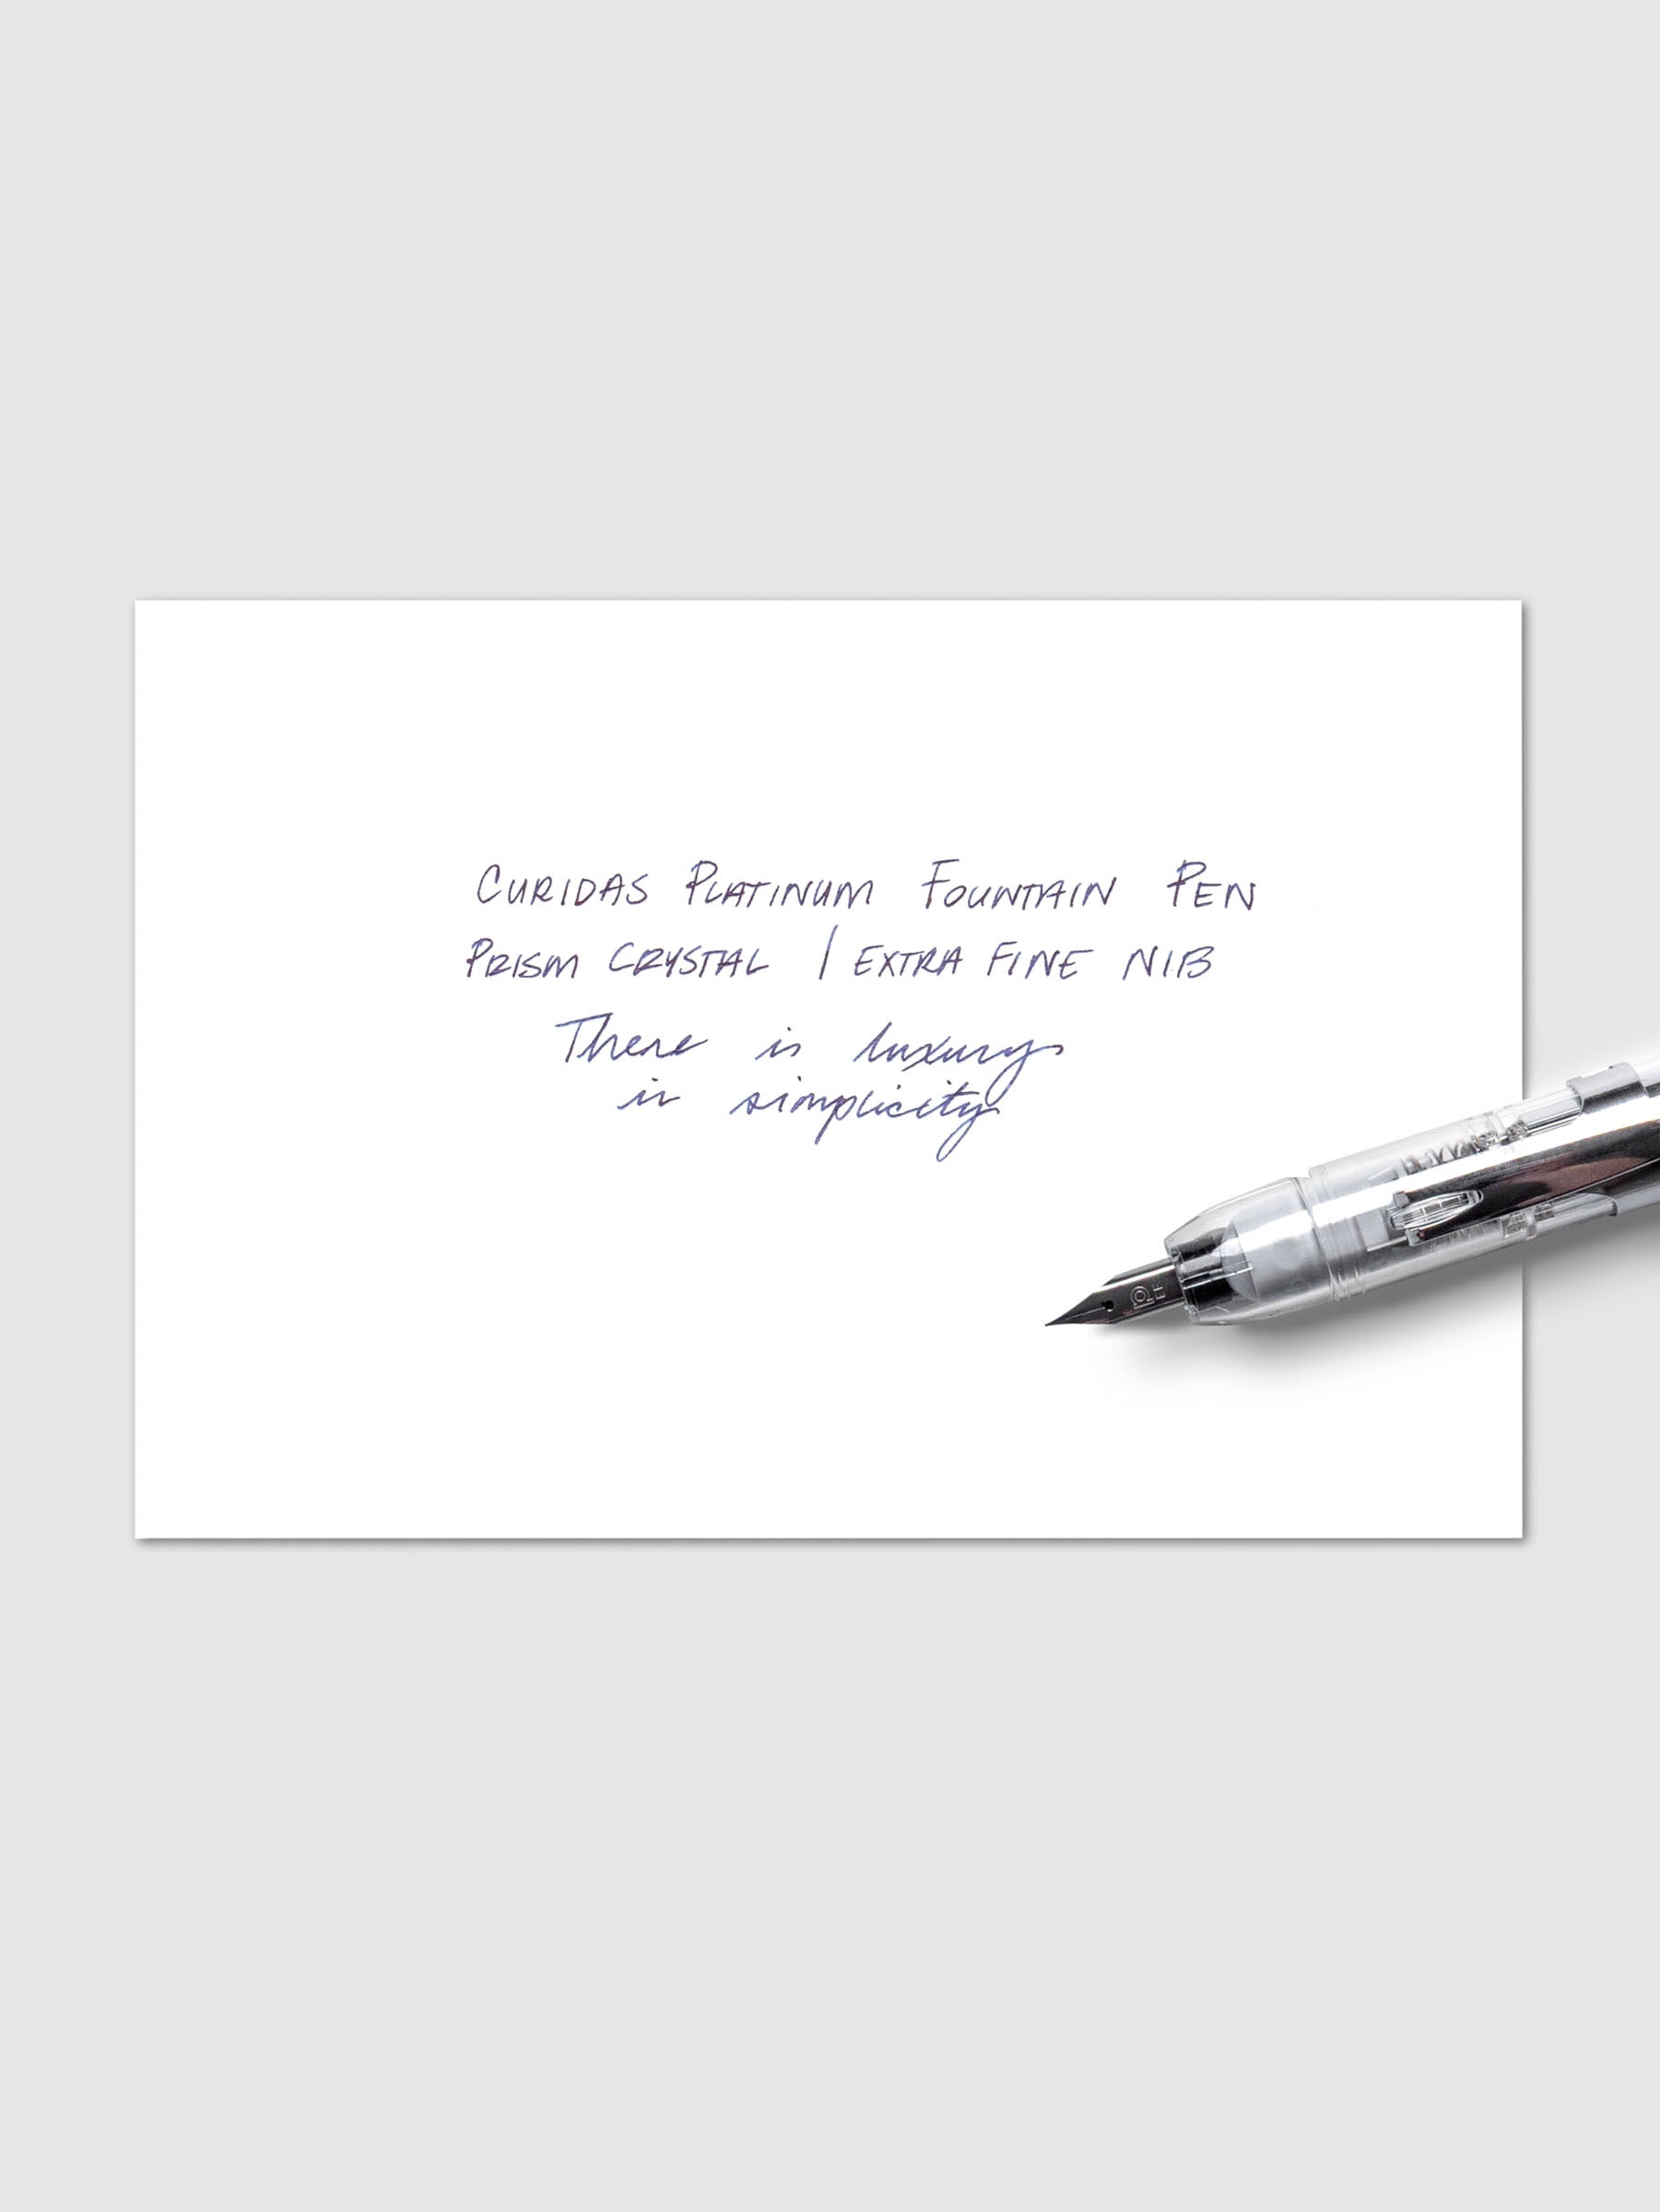 CURIDAS PLATINUM FOUNTAIN PEN
PRISM CRYSTAL | EXTRA FINE NIB
There is luxury
in simplicity